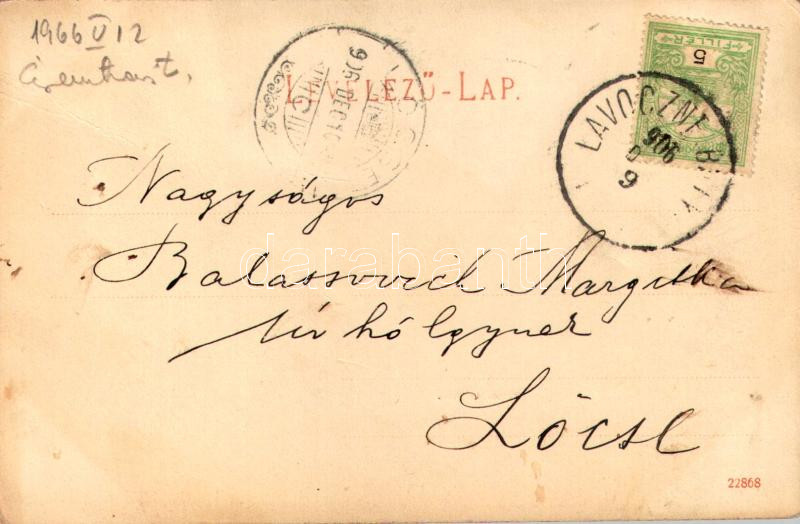 1966 V 12
LEVELEZŐ-LAP.
906 DEC 10
5
FILLÉR
LAVOCZNE
906
D
9
Nagyságos
Balassovich Margitka
úrhölgynek
Lőcse
darabanth
22868